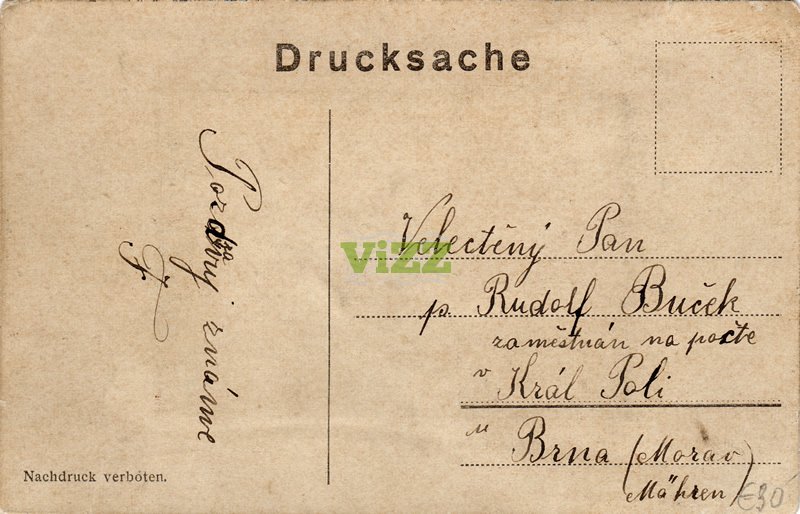 Drucksache
Velectěný Pan
p. Rudolf Buček
zaměstnán na poště
v Král Poli
u Brna (Morav
Mähren)
Pozdravy známé
F
Nachdruck verboten.
ViZZ
€30